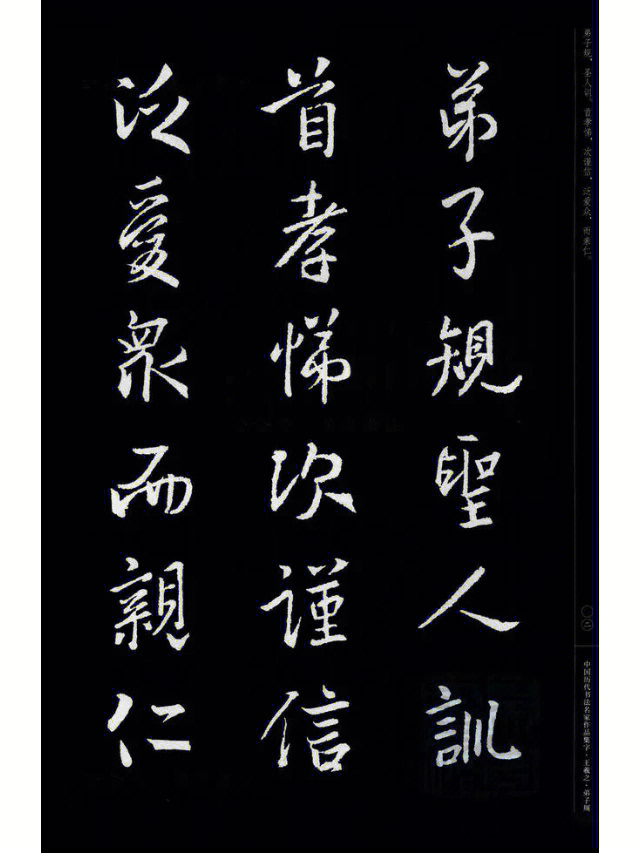 弟子规，圣人训。首孝悌，次谨信。泛爱众，而亲仁。
〇二
中国历代书法名家作品集字·王羲之·弟子规
弟子規聖人訓
首孝悌次謹信
泛愛衆而親仁